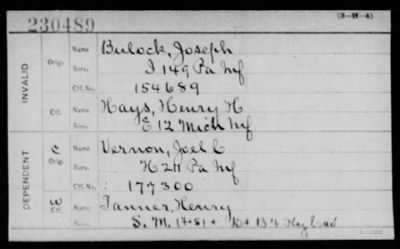 (3-H-4)
230489
INVALID
Orig. Name Bulock, Joseph
Serv. I 149 Pa Inf
Ctf. No. 154689
Ctf. Name Hays, Henry H
Serv. C 12 Mich Inf
DEPENDENT
C Orig. Name Vernon, Joel C
Serv. H 211 Pa Inf
Ctf. No. : 177300
W Ctf. Name Tanner, Henry
Serv. S. M. 17 + 51 + D + 134 Ky Cav